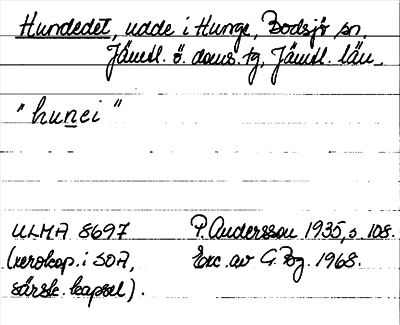 Hundedet, udde i Hunge, Bodsjö sn.
Jämtl. ö. doms. tg, Jämtl. län.
"hunei"
ULMA 8697 P. Andersson 1935, s. 108.
(xeroxkop. i SOA, Exc. av G. Bg. 1968.
särsk. kapsel).